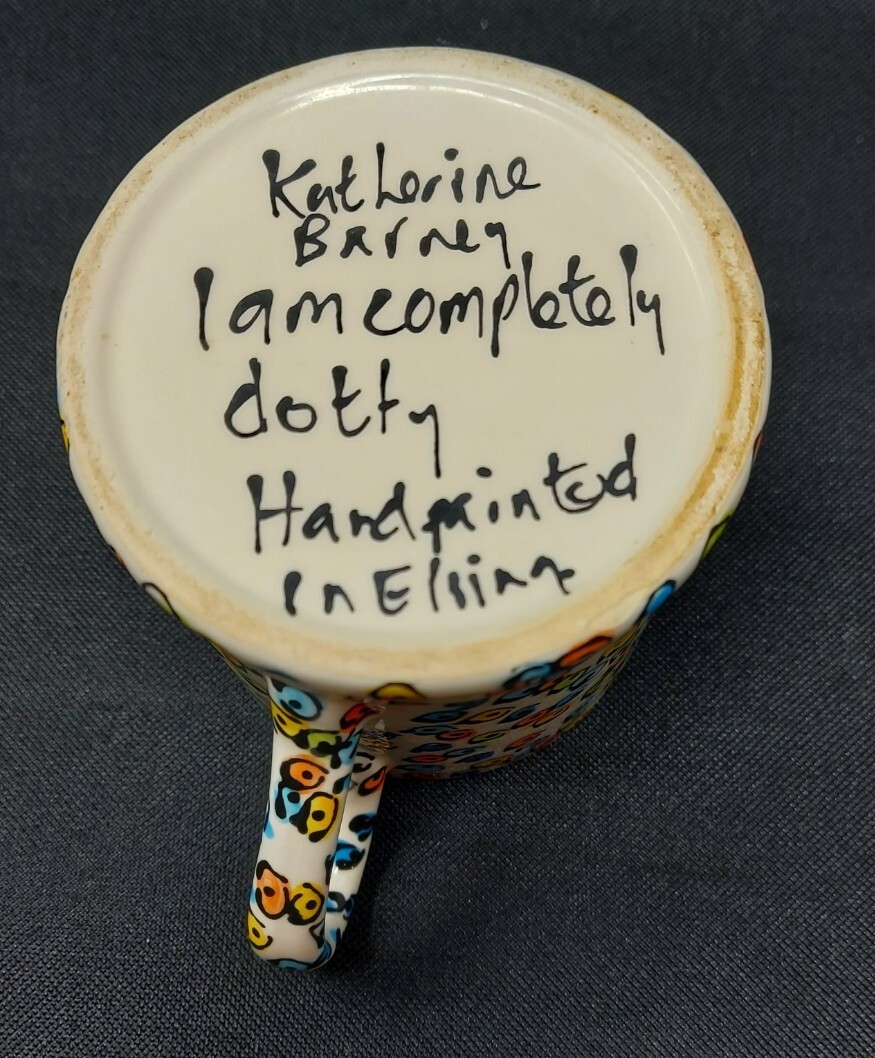 Katherine
Barney
I am completely
dotty
Handpainted
in Elsing